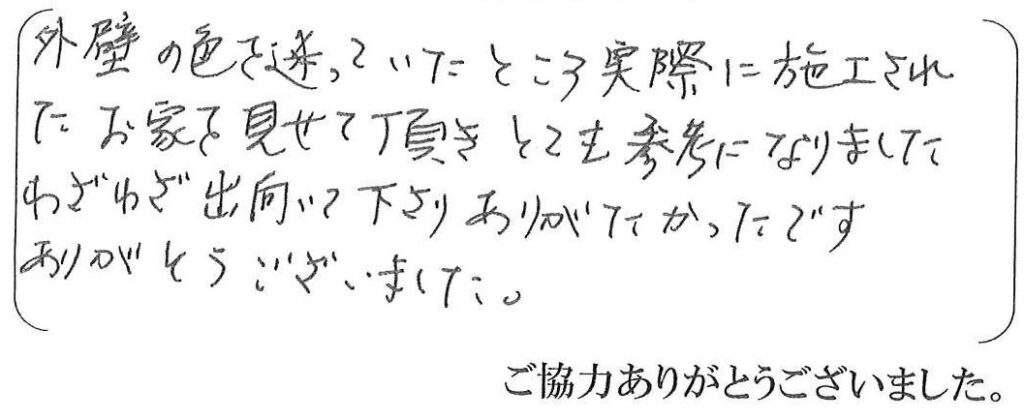 外壁の色を迷っていたところ実際に施工され
たお家を見せて頂きとても参考になりました
わざわざ出向いて下さりありがたかったです
ありがとうございました。
ご協力ありがとうございました。